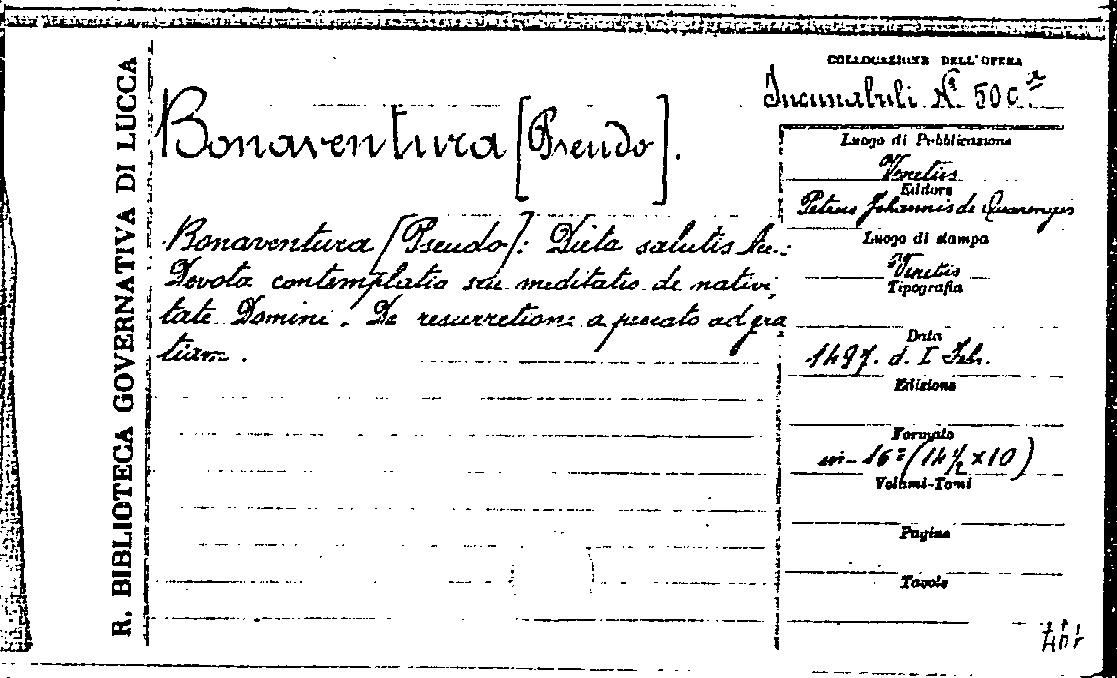 R. BIBLIOTECA GOVERNATIVA DI LUCCA
Bonaventura [Pseudo].
Bonaventura [Pseudo]: Dieta salutis
Devota contemplatio seu meditatio de nativi-
tate Domini. De resurretione a peccato ad gra
tiam.
COLLOCAZIONE DELL'OPERA
Incunabuli N.° 50c
Luogo di Pubblicazione
Venetiis
Editore
Petrus Johannis de Quarengiis
Luogo di stampa
Venetiis
Tipografia
Data
1497. d. I Feb.
Edizione
Formato
in-16° (14½ x 10)
Volumi-Tomi
Pagine
Tavole